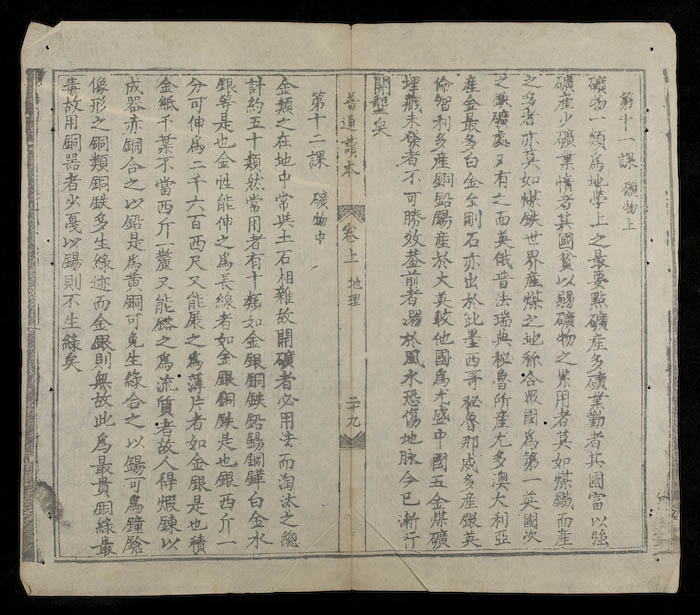 第十一課 礦物上
礦物一類爲地學上之最要點礦産多礦業勤者其國富以強
礦産少礦業惰者其國貧以弱礦物之累用者莫如煤鐵而産
之多者亦莫如煤鐵世界産煤之地称合眾國爲第一英國次
之鉄礦處又有之而英俄普法瑞典秘魯所産尤多澳大利亞
産金最多白金金剛石亦出於此墨西哥秘魯那威多産銀英
倫智利多産銅鉛錫産於大英較他國爲尤盛中國五金煤礦
埋藏未發者不可勝效盖前者溺於風水恐傷地脉今已漸行
開墾矣
普通讀本
卷上
地理
二十九
第十二課 礦物中
金類之在地中常與土石相雜故開礦者必用法而淘汰之總
計約五十類然常用者有十類如金銀銅鉄鉛錫鋼白金水
銀等是也金性能伸之爲長線者如金銀銅鉄是也銀西斤一
分可伸爲二千六百西尺又能展之爲薄片者如金銀是也積
金紙千葉不當西斤一釐又能鎔之爲流質者故人得煆鍊以
成器赤銅合之以鉛是爲黄銅可免生綠合之以錫可爲鐘鎗
像形之銅類銅鉄多生綠迹而金銀則無故此爲最貴銅綠最
毒故用銅器者少戞以錫則不生綠矣